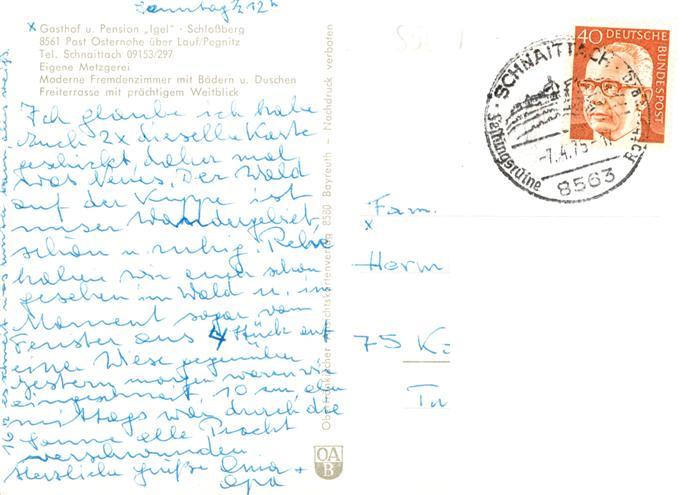 Sonntag ½ 12 h
x Gasthof u. Pension „Igel" · Schloßberg
8561 Post Osternohe über Lauf/Pegnitz
Tel. Schnaittach 09153/297
Eigene Metzgerei
Moderne Fremdenzimmer mit Bädern u. Duschen
Freiterrasse mit prächtigem Weitblick
Ich glaube ich habe
Euch 2x dieselbe Karte
geschickt daher mal
was Neues. Der Wald
auf der Kuppe ist
unser Wandergebiet,
schön u. ruhig. Rehe
haben wir auch schon
gesehen im Wald u. im
Moment sogar vom
Fenster aus 4 Stück auf
einer Wiese gegenüber
Gestern morgen waren wir
eingeschneit, 10 cm, aber
mittags war durch die
Sonne alle Pracht
verschwunden
Herzliche Grüße Oma +
Opa
16 h es schneit
Oberfränkischer Ansichtskartenverlag 8580 Bayreuth - Nachdruck verboten
OA
B
40 DEUTSCHE
BUNDESPOST
SCHNAITTACH
Festungsruine Rothenberg
-7.4.75-
8563
Fam.
x
Herm
75 Ka
Tu